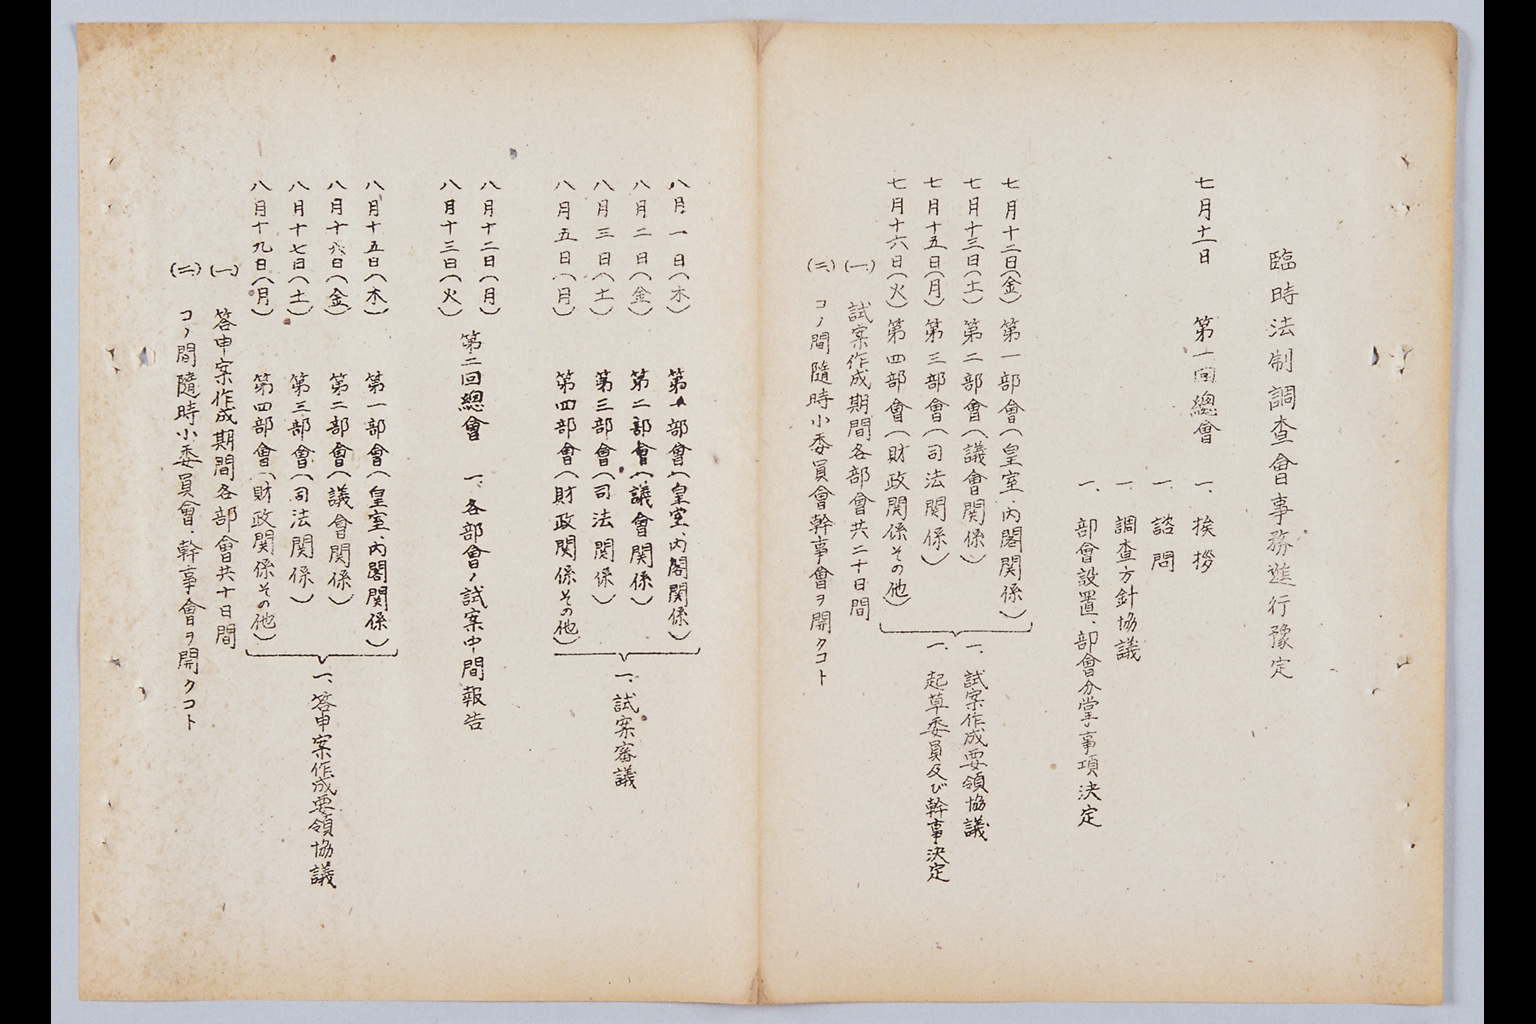 臨時法制調査會事務進行豫定
七月十一日 第一回總會 一、挨拶
一、諮問
一、調査方針協議
一、部會設置、部會分掌事項決定
七月十二日(金) 第一部會(皇室、内閣関係)
七月十三日(土) 第二部會(議會関係)
七月十五日(月) 第三部會(司法関係)
七月十六日(火) 第四部會(財政関係その他)
一、試案作成要領協議
一、起草委員及び幹事決定
(一) 試案作成期間各部會共二十日間
(二) コノ間隨時小委員會幹事會ヲ開クコト
八月一日(木) 第一部會(皇室、内閣関係)
八月二日(金) 第二部會(議會関係)
八月三日(土) 第三部會(司法関係)
八月五日(月) 第四部會(財政関係その他)
一、試案審議
八月十二日(月)
八月十三日(火)
第二回總會 一、各部會ノ試案中間報告
八月十五日(木) 第一部會(皇室、内閣関係)
八月十六日(金) 第二部會(議會関係)
八月十七日(土) 第三部會(司法関係)
八月十九日(月) 第四部會(財政関係その他)
一、答申案作成要領協議
(一) 答申案作成期間各部會共十日間
(二) コノ間隨時小委員會、幹事會ヲ開クコト